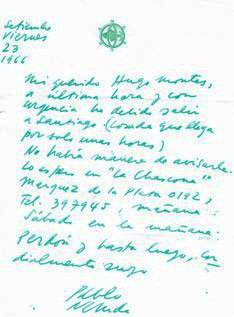 Setiembre
Viernes
23
1966
Mi querido Hugo Montes,
a última hora y con
urgencia he debido salir
a Santiago (Losada que llega
por solo unas horas)
No había manera de avisarle.
Lo espero en "La Chascona"
Marquez de la Plata 0192,
Tel. 397945, mañana
Sábado en la mañana.
Perdón y hasta luego, cor
dialmente suyo
Pablo
Neruda